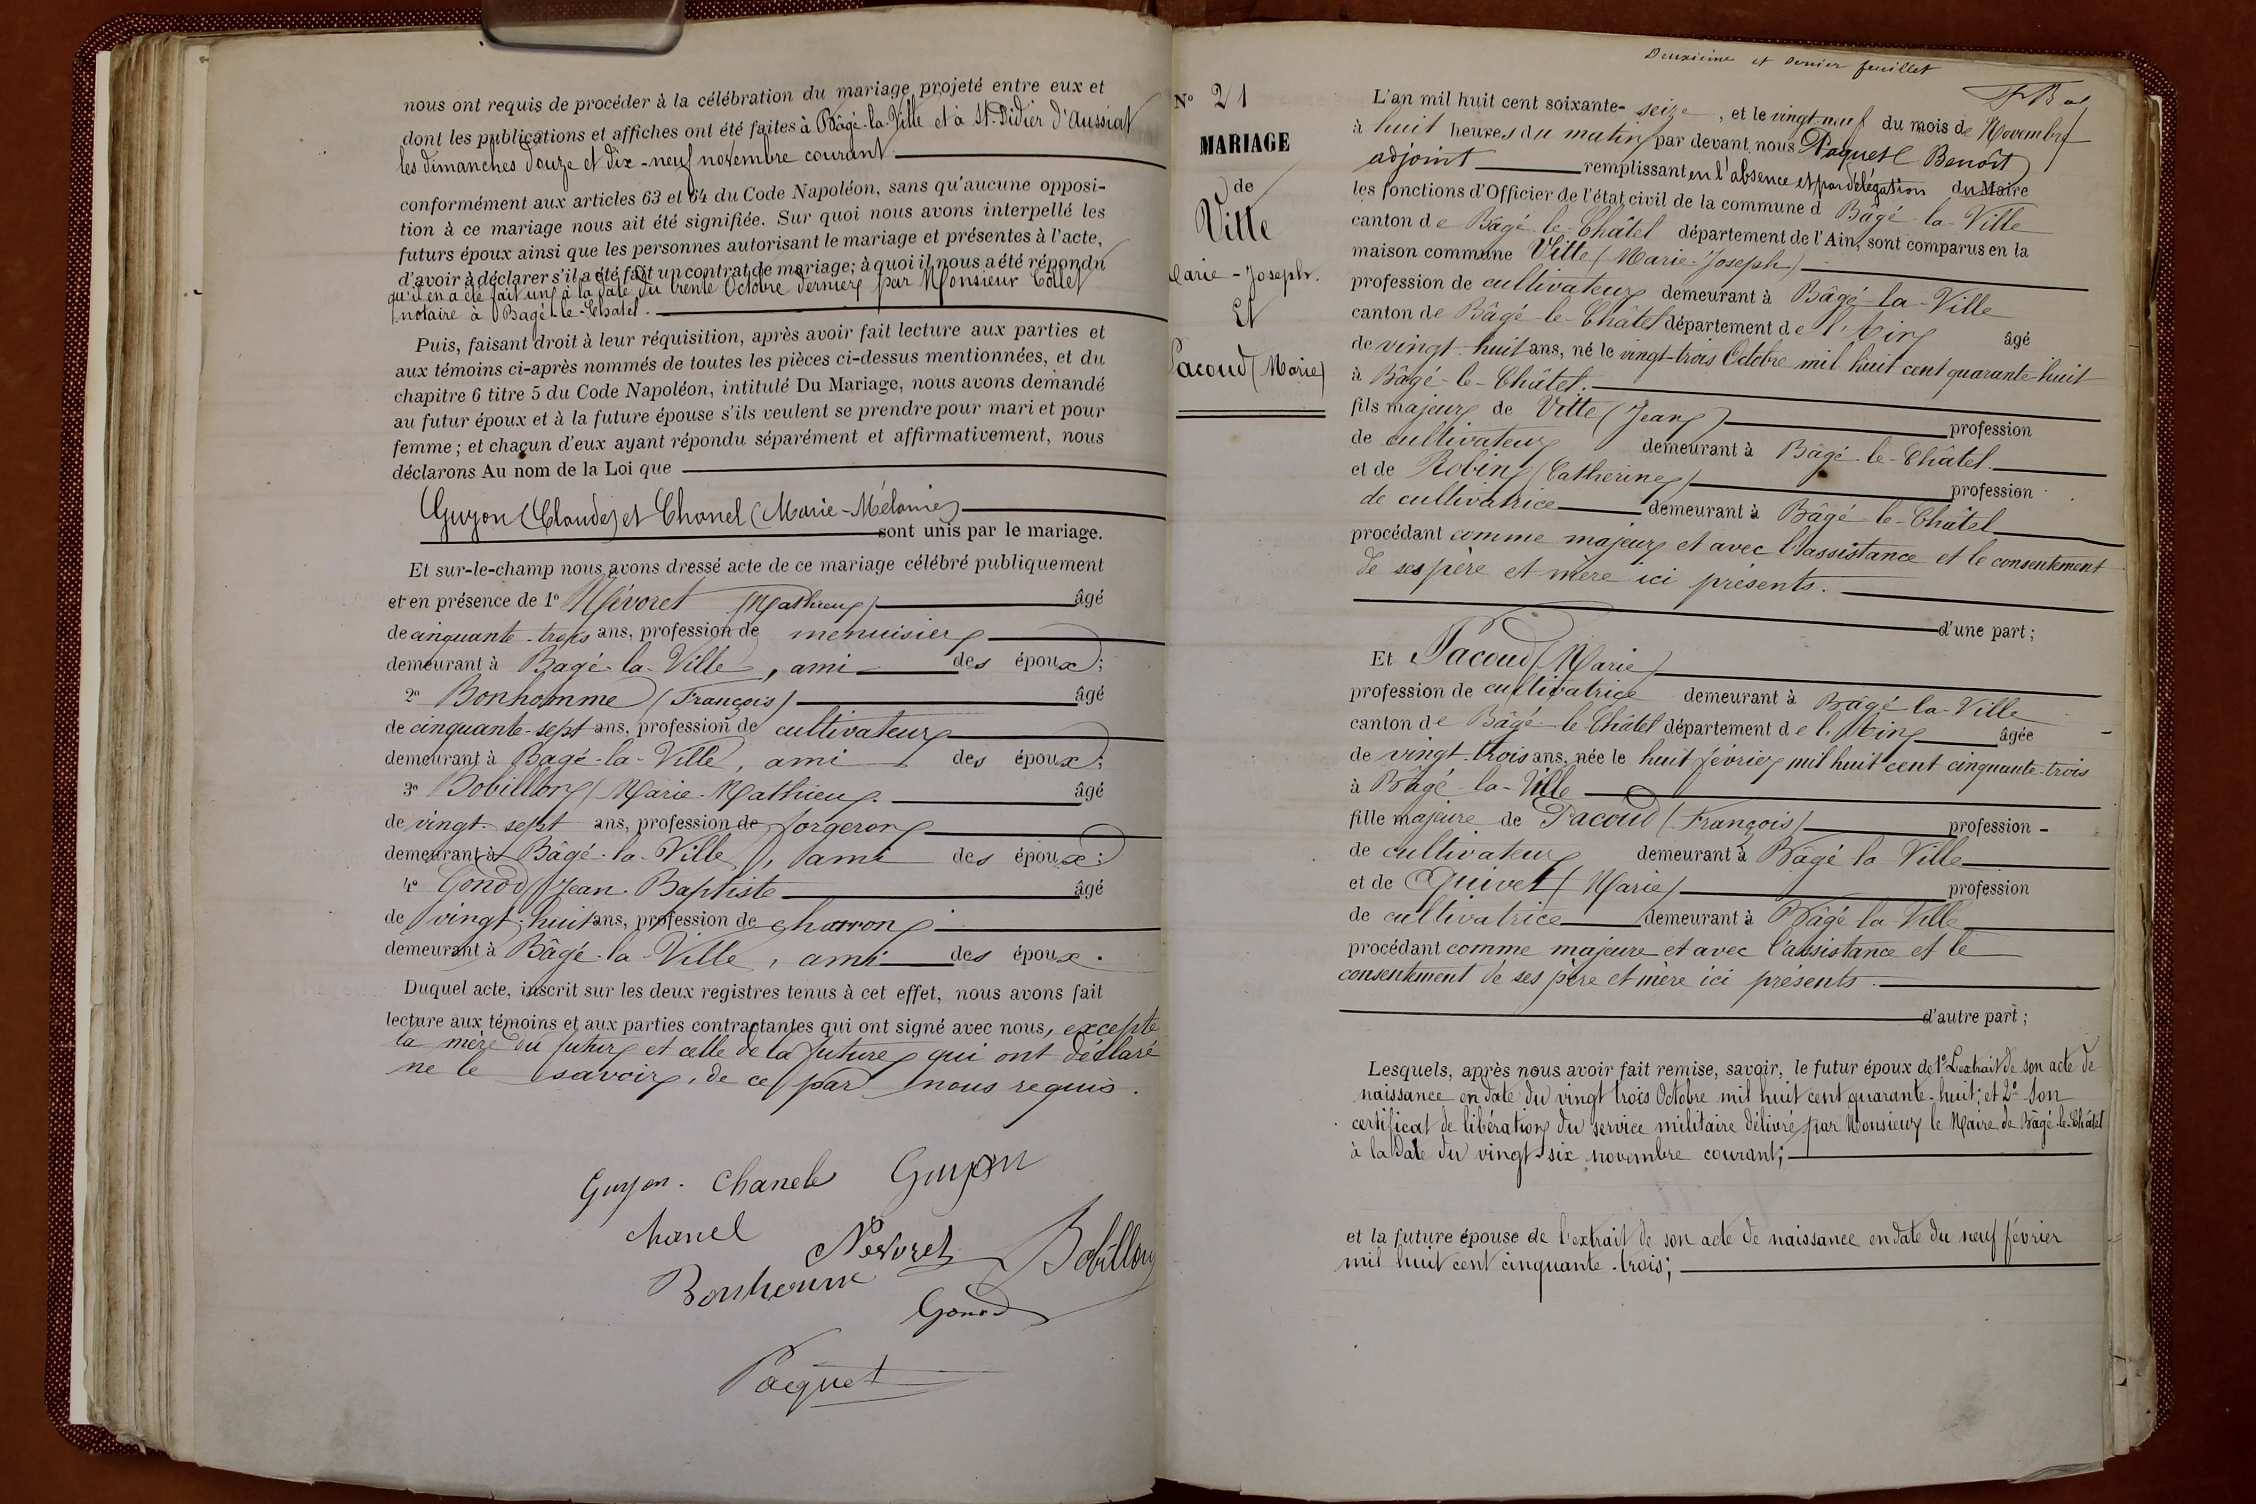 nous ont requis de procéder à la célébration du mariage projeté entre eux et
dont les publications et affiches ont été faites à Bâgé-la-Ville et à St-Didier d'Aussiat
les dimanches douze et dix-neuf novembre courant.
conformément aux articles 63 et 64 du Code Napoléon, sans qu'aucune opposi-
tion à ce mariage nous ait été signifiée. Sur quoi nous avons interpellé les
futurs époux ainsi que les personnes autorisant le mariage et présentes à l'acte,
d'avoir à déclarer s'il a été fait un contrat de mariage; à quoi il nous a été répondu
qu'il en a été fait un à la date du trente Octobre dernier par Monsieur Collet
notaire à Bagé-le-Chatel.
Puis, faisant droit à leur réquisition, après avoir fait lecture aux parties et
aux témoins ci-après nommés de toutes les pièces ci-dessus mentionnées, et du
chapitre 6 titre 5 du Code Napoléon, intitulé Du Mariage, nous avons demandé
au futur époux et à la future épouse s'ils veulent se prendre pour mari et pour
femme; et chacun d'eux ayant répondu séparément et affirmativement, nous
déclarons Au nom de la Loi que
Guyon (Claude) et Chanel (Marie-Mélanie)
sont unis par le mariage.
Et sur-le-champ nous avons dressé acte de ce mariage célébré publiquement
et en présence de 1° Névoret (Mathieu) âgé
de cinquante-trois ans, profession de menuisier
demeurant à Bagé-la-Ville, ami des époux;
2° Bonhomme (François) âgé
de cinquante-sept ans, profession de cultivateur
demeurant à Bagé-la-Ville, ami des époux;
3° Bobillon (Marie-Mathieu. âgé
de vingt-sept ans, profession de forgeron
demeurant à Bâgé-la-Ville, ami des époux;
4° Gonod (Jean-Baptiste âgé
de vingt-huit ans, profession de charron
demeurant à Bâgé-la-Ville, ami des époux.
Duquel acte, inscrit sur les deux registres tenus à cet effet, nous avons fait
lecture aux témoins et aux parties contractantes qui ont signé avec nous, excepté
la mère du futur et celle de la future qui ont déclaré
ne le savoir, de ce par nous requis.
Guyon. Chanel Guyon
Chanel Névoret Bobillon
Bonhomme
Gonod
Paquet
Deuxième et dernier feuillet
N° 21
MARIAGE
de
Vitte
Marie-Joseph.
Et
Pacoud (Marie)
L'an mil huit cent soixante-seize, et le vingt-neuf du mois de Novembre
à huit heures du matin par devant nous Paquet Benoît
adjoint remplissant en l'absence et par délégation du Maire
les fonctions d'Officier de l'état civil de la commune d Bâgé-la-Ville
canton de Bâgé-le-Châtel département de l'Ain, sont comparus en la
maison commune Vitte (Marie-Joseph)
profession de cultivateur demeurant à Bâgé-la-Ville
canton de Bâgé-le-Châtel département de l'Ain âgé
de vingt-huit ans, né le vingt-trois Octobre mil huit cent quarante-huit
à Bâgé-le-Châtel.
fils majeur de Vitte (Jean) profession
de cultivateur demeurant à Bâgé-le-Châtel.
et de Robin (Catherine) profession
de cultivatrice demeurant à Bâgé-le-Châtel
procédant comme majeur et avec l'assistance et le consentement
de ses père et mère ici présents.
d'une part;
Et Pacoud (Marie)
profession de cultivatrice demeurant à Bâgé-la-Ville
canton de Bâgé-le-Châtel département de l'Ain âgée
de vingt-trois ans, née le huit février mil huit cent cinquante-trois
à Bâgé-la-Ville
fille majeure de Pacoud (François) profession
de cultivateur demeurant à Bâgé la Ville
et de Quivet (Marie) profession
de cultivatrice demeurant à Bâgé la Ville
procédant comme majeure et avec l'assistance et le
consentement de ses père et mère ici présents.
d'autre part;
Lesquels, après nous avoir fait remise, savoir, le futur époux de 1° L'extrait de son acte de
naissance en date du vingt trois Octobre mil huit cent quarante-huit; et 2° Son
certificat de libération du service militaire délivré par Monsieur le Maire de Bâgé-le-Châtel
à la Date du vingt-six novembre courant;
et la future épouse de l'extrait de son acte de naissance en date du neuf février
mil huit cent cinquante-trois;